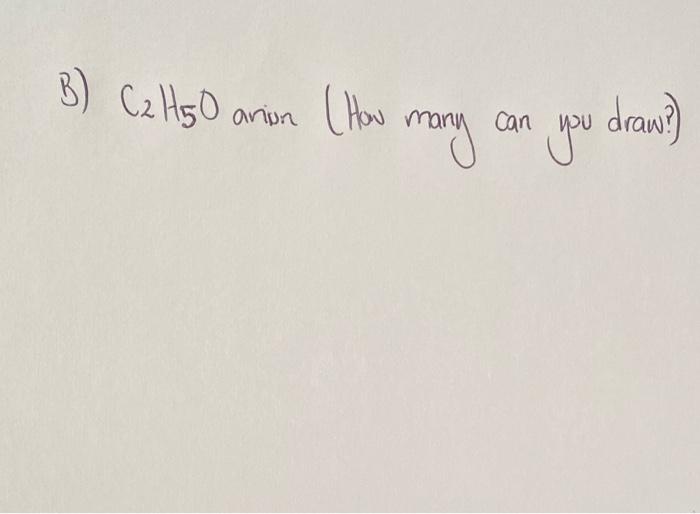 B) C₂H₅O anion (How many can you draw?)